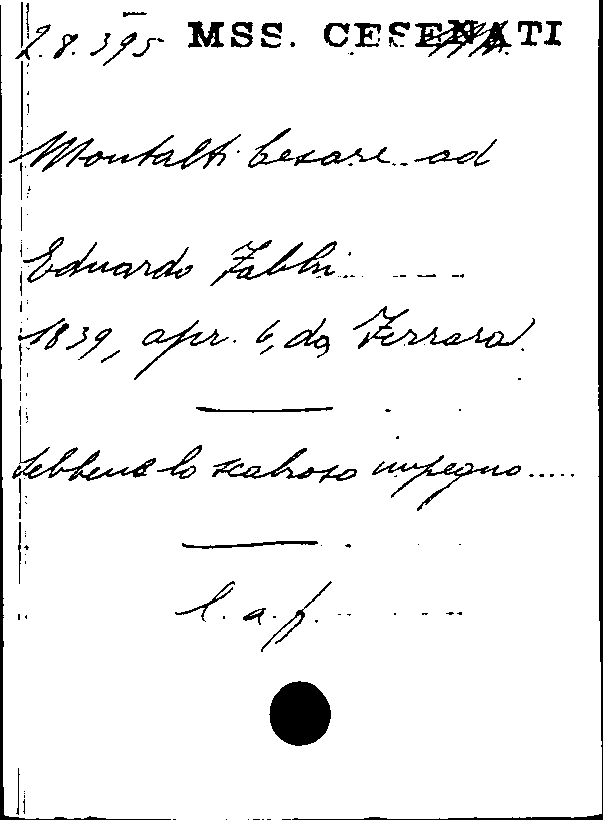 2.8.395 MSS. CESENATI
Montalti Cesare ad
Eduardo Fabbri
1839, apr. 6, da Ferrara
Sebbene lo scabroso impegno.....
l. a. f.